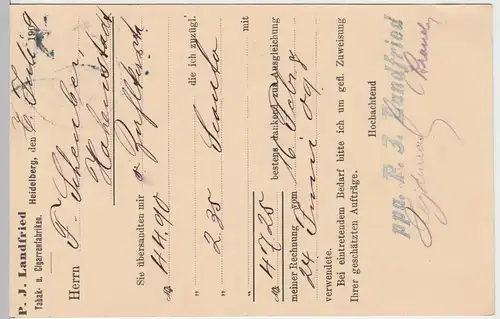 P. J. Landfried
Tabak- u. Cigarrenfabriken.
Heidelberg, den 6. Juli 1909
Herrn
F. Scheuber,
Sie übersandten mir
M 44.90
" 2.35 die ich zuzügl. Sconto
" mit
M 47.25 bestens dankend zur Ausgleichung
meiner Rechnung vom 16
24 Juni 09
verwendete.
Bei eintretendem Bedarf bitte ich um gefl. Zuweisung
Ihrer geschätzten Aufträge.
Hochachtend
ppa. P. J. Landfried